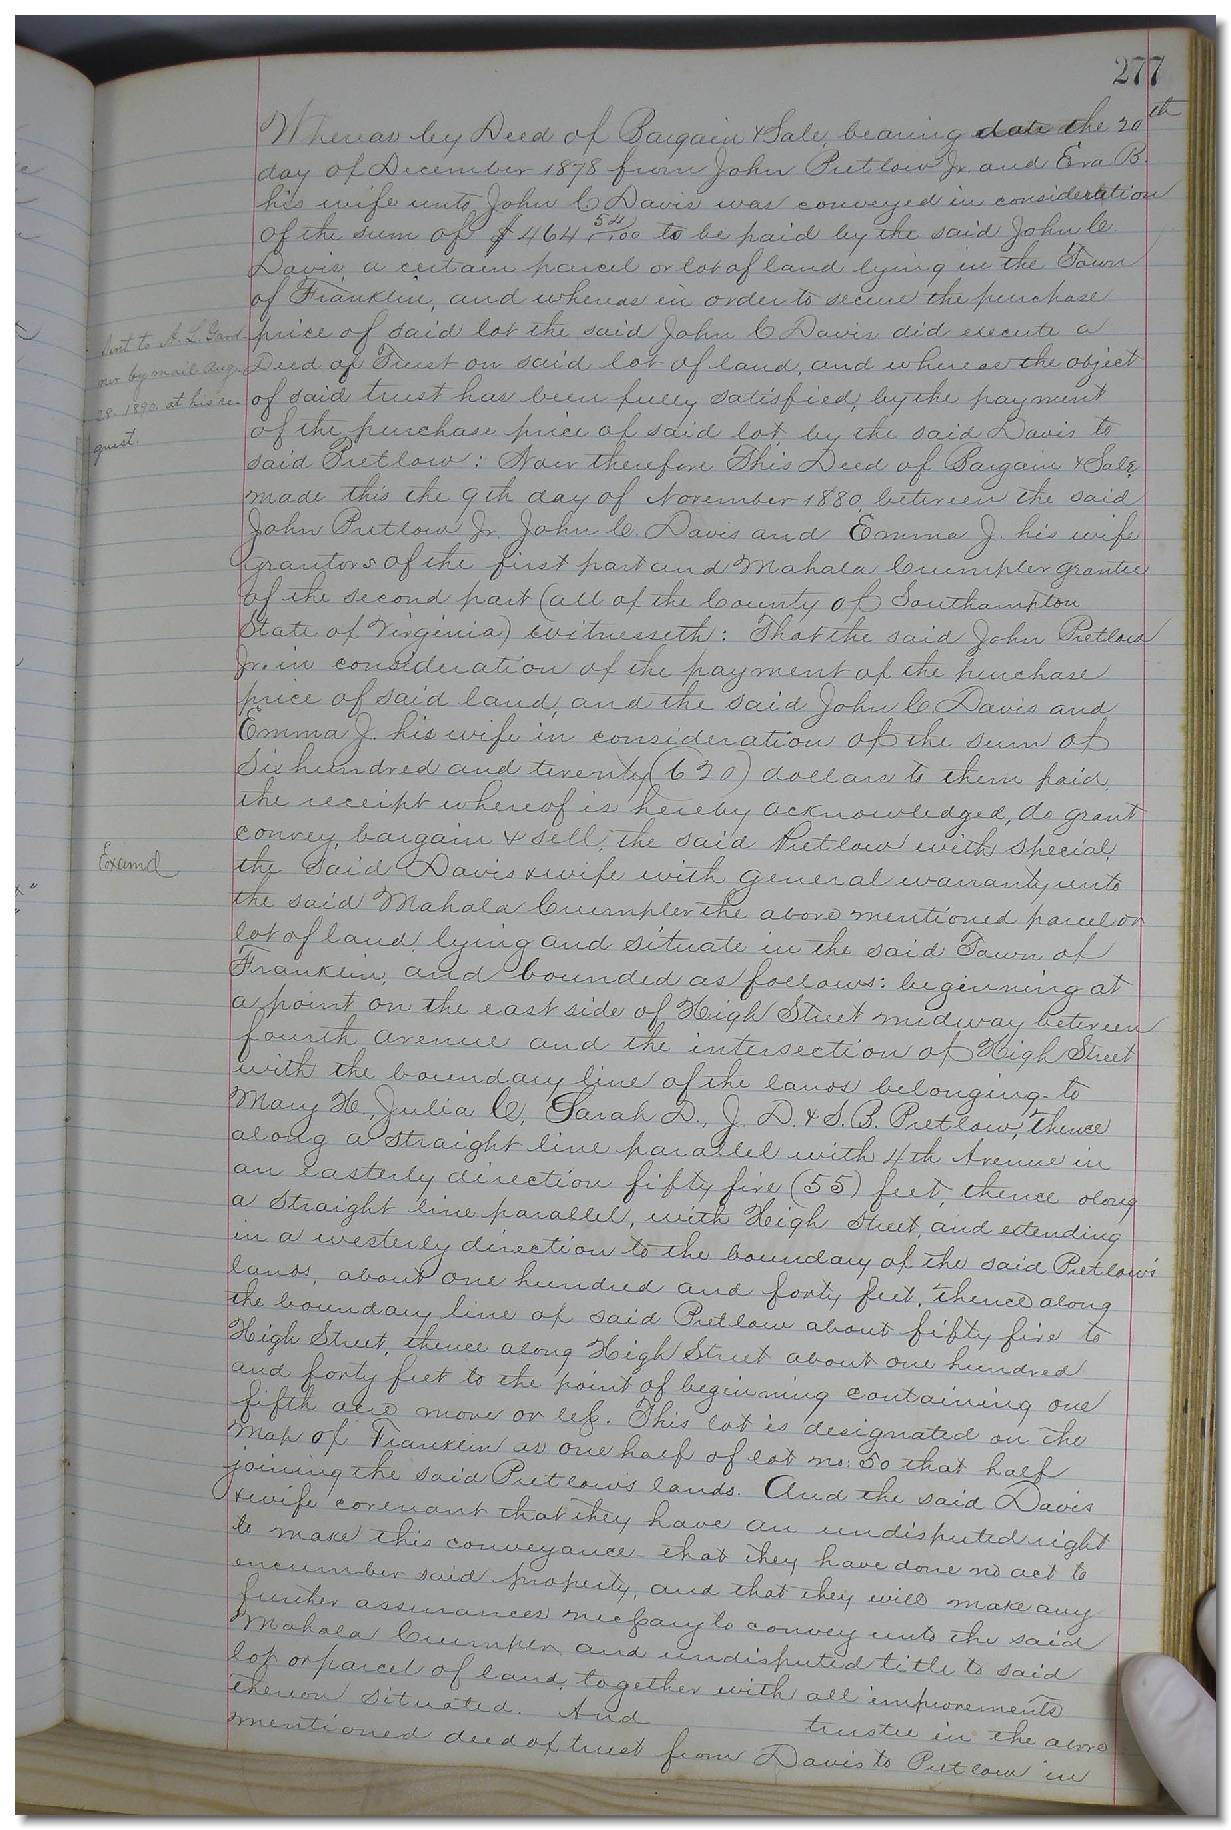 277
Whereas by Deed of Bargain & Sale, bearing date the 20th
day of December 1878 from John Pretlow Jr. and Eva B.
his wife unto John C Davis was conveyed in consideration
of the sum of $464 54/100 to be paid by the said John C
Davis, a certain parcel or lot of land lying in the Town
of Franklin, and whereas in order to secure the purchase
price of said lot the said John C Davis did execute a
Deed of Trust on said lot of land, and whereas the object
of said trust has been fully satisfied, by the payment
of the purchase price of said lot by the said Davis to
said Pretlow: Now therefore This Deed of Bargain & Sale,
made this the 9th day of November 1880, between the said
John Pretlow Jr. John C. Davis and Emma J. his wife
grantors of the first part and Mahala Crumpler grantee
of the second part (all of the County of Southampton
State of Virginia) witnesseth: That the said John Pretlow
Jr. in consideration of the payment of the purchase
price of said land, and the said John C Davis and
Emma J. his wife in consideration of the sum of
Six hundred and twenty (620) dollars to them paid,
the receipt whereof is hereby acknowledged, do grant
convey, bargain & sell, the said Pretlow with special,
the said Davis & wife with general warranty unto
the said Mahala Crumpler the above mentioned parcel or
lot of land lying and situate in the said Town of
Franklin, and bounded as follows: beginning at
a point on the east side of High Street midway between
fourth avenue and the intersection of High Street
with the boundary line of the lands belonging to
Mary H., Julia C, Sarah D., J. D. & S. B. Pretlow, thence
along a straight line parallel with 4th Avenue in
an easterly direction fifty five (55) feet, thence along
a straight line parallel, with High Street, and extending
in a westerly direction to the boundary of the said Pretlow's
lands, about one hundred and forty feet, thence along
the boundary line of said Pretlow about fifty five to
High Street, thence along High Street about one hundred
and forty feet to the point of beginning containing one
fifth acre more or less. This lot is designated on the
Map of Franklin as one half of lot no. 50 that half
joining the said Pretlow's lands. And the said Davis
& wife covenant that they have an undisputed right
to make this conveyance that they have done no act to
encumber said property, and that they will make any
further assurances necessary to convey unto the said
Mahala Crumpler and undisputed title to said
lot or parcel of land, together with all improvements
thereon situated. And trustee in the above
mentioned deed of trust from Davis to Pretlow in
Sent to A. L. Gard
ner by mail Aug.
28. 1890. at his re-
quest.
Examd